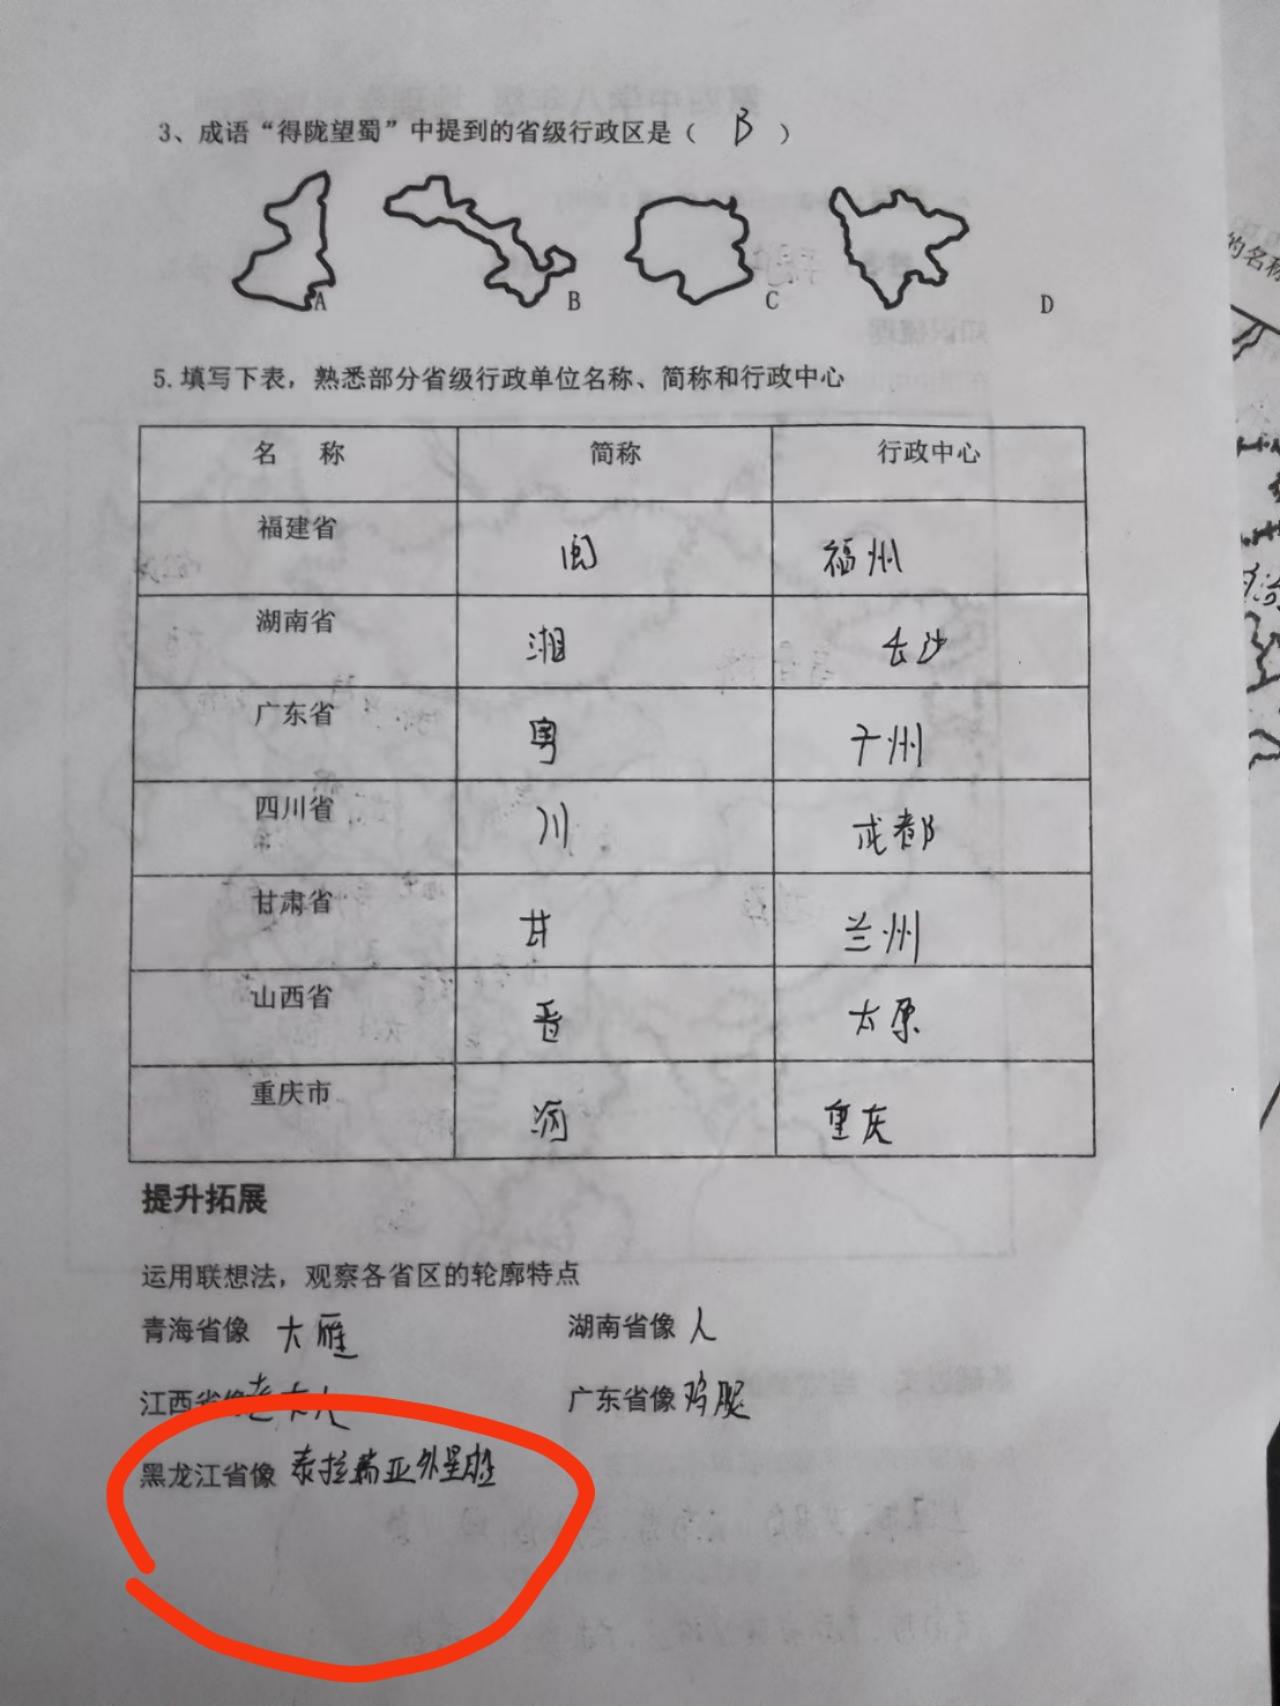 3、成语“得陇望蜀”中提到的省级行政区是（ B ）
A B C D
5.填写下表，熟悉部分省级行政单位名称、简称和行政中心
名 称 简称 行政中心
福建省 闽 福州
湖南省 湘 长沙
广东省 粤 广州
四川省 川 成都
甘肃省 甘 兰州
山西省 晋 太原
重庆市 重庆
提升拓展
运用联想法，观察各省区的轮廓特点
青海省像 大雁 湖南省像 人
江西省像 老大人 广东省像 鸡腿
黑龙江省像 泰拉瑞亚外星
的名称